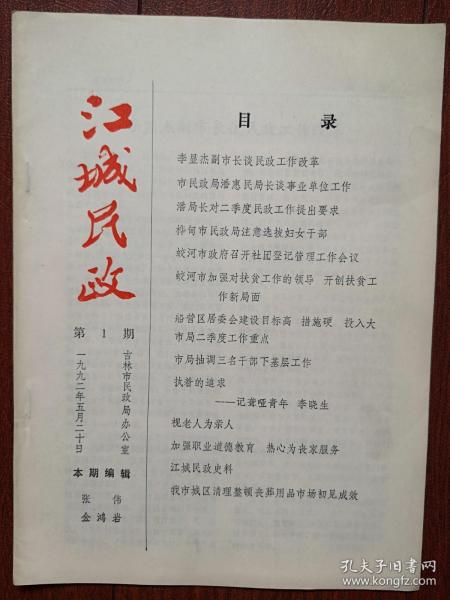 江城民政
第1期
吉林市民政局办公室
一九九二年五月二十日
本期编辑
张伟
金鸿岩
目录
李显杰副市长谈民政工作改革
市民政局潘惠民局长谈事业单位工作
潘局长对二季度民政工作提出要求
桦甸市民政局注意选拔妇女干部
蛟河市政府召开社团登记管理工作会议
蛟河市加强对扶贫工作的领导 开创扶贫工
作新局面
船营区居委会建设目标高 措施硬 投入大
市局二季度工作重点
市局抽调三名干部下基层工作
执着的追求
——记聋哑青年 李晓生
视老人为亲人
加强职业道德教育 热心为丧家服务
江城民政史料
我市城区清理整顿丧葬用品市场初见成效
孔夫子旧书网
www.kongfz.com